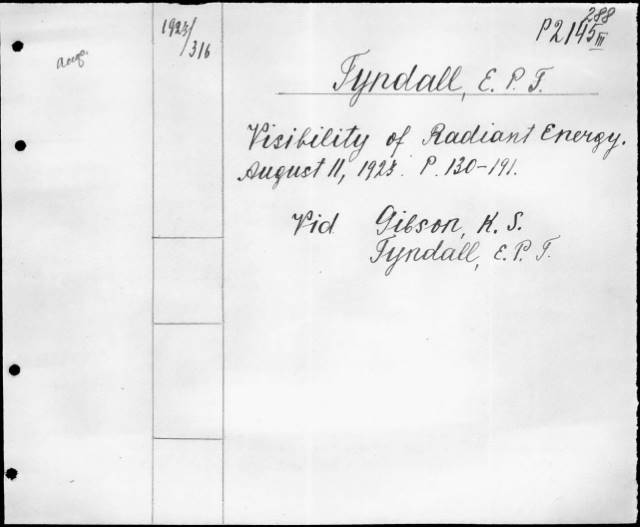 angl.
1923/316
288
P2145
III
Tyndall, E. P. T.
Visibility of Radiant Energy.
August 11, 1923. P. 130-191.
Vid Gibson, K. S.
Tyndall, E. P. T.